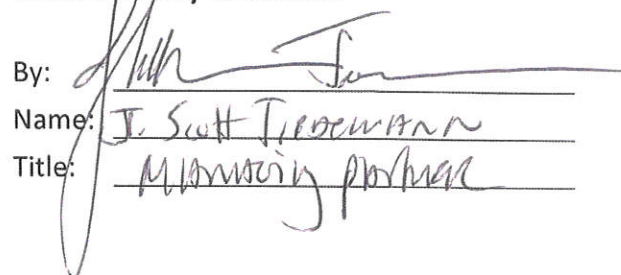 By:
Name: J. Scott Tiedemann
Title: Managing Partner